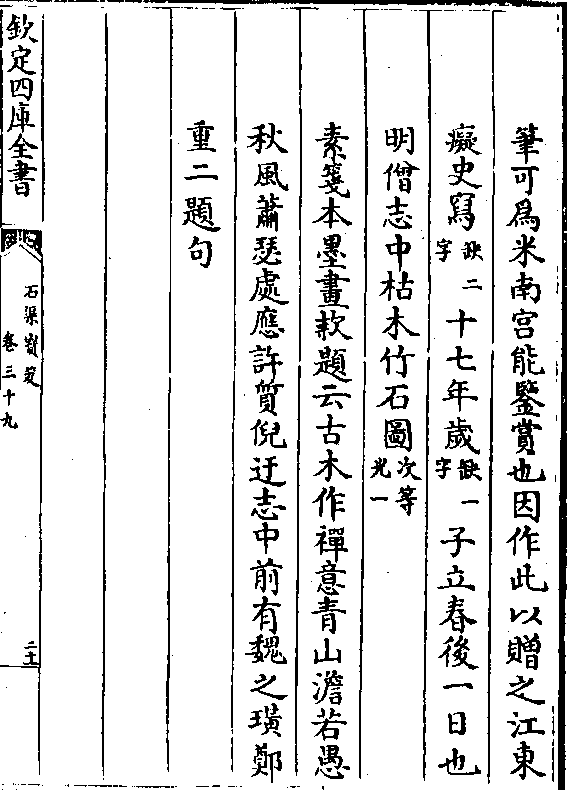 筆可爲米南宫能鑒賞也因作此以贈之江東
癡史寫缺二字十七年歲缺一字子立春後一日也
明僧志中枯木竹石圖次等光一
素箋本墨畫款題云古木作禪意青山澹若愚
秋風蕭瑟處應許質倪迂志中前有魏之璜鄭
重二題句
欽定四庫全書
石渠寳笈
卷三十九
二十